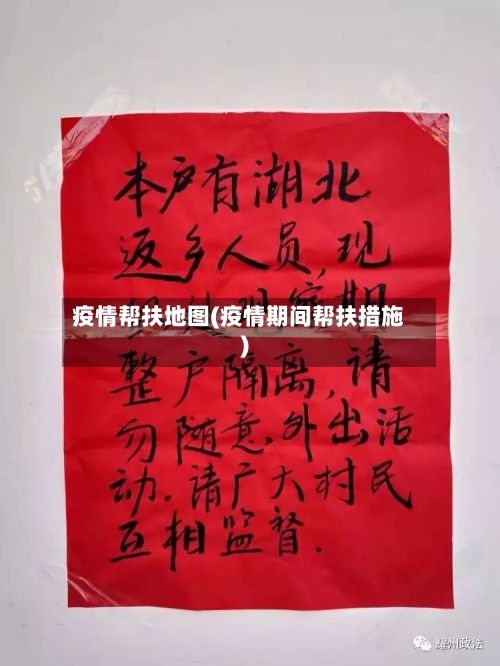 本户有湖北
返乡人员,现
观察期
疫情帮扶地图(疫情期间帮扶措施
)
整户隔离,请
勿随意外出活
动。请广大村民
互相监督.
耀州政法